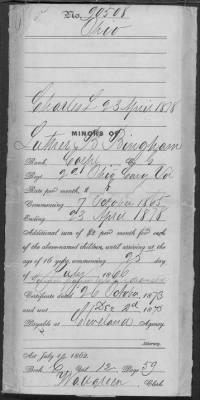 No. 90508
Ohio
Charles L 23 April 1878
MINORS OF
Luther B. Bingham
Rank, Corpl Co. G
Regt. 2d Ohio Cavy Vol
Rate per month, $8
Commencing 7 October 1865
Ending 23 April 1878.
Additional sum of $2 per month for each
of the above-named children, until arriving at the
age of 16 years, commencing 25
of July 1866
Certificate dated 26 October, 1873
and sent Dec 2d 1873
Payable at Cleveland Agency.
Attorney.
Act July 14, 1862.
Book Vol. 12, Page 59
Clerk